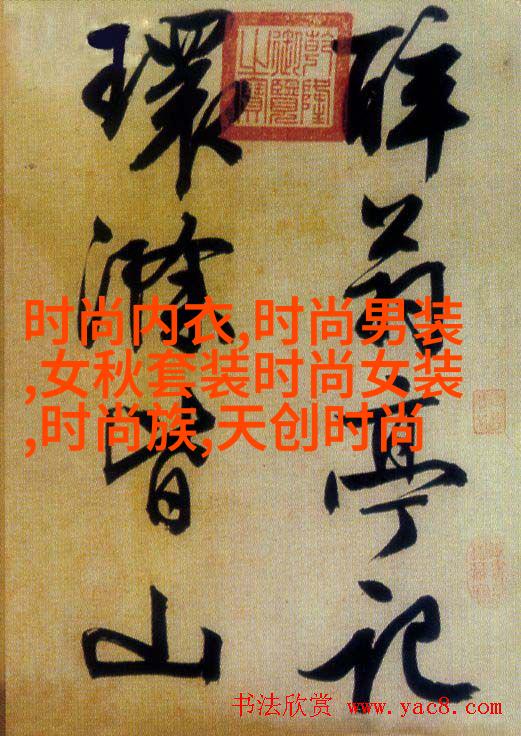 醉翁亭記
環滁皆山
乾隆
御覽
之寶
时尚内衣,时尚男装
,女秋套装时尚女装
,时尚族,天创时尚
书法欣赏 www.yac8.com